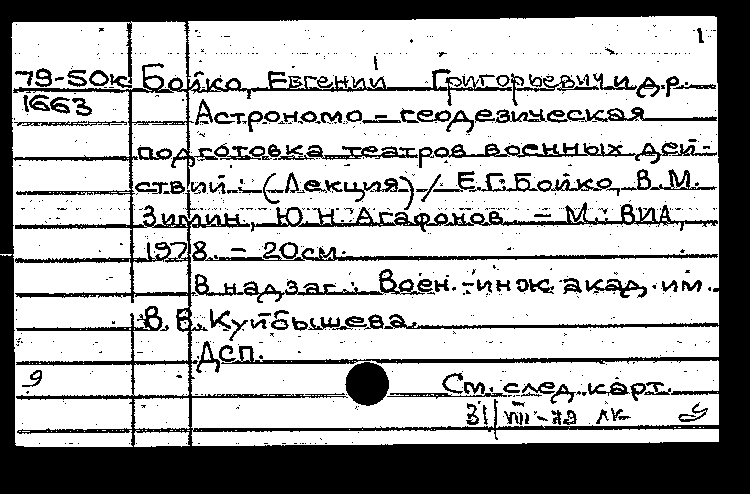 1
79-50к Бойко, Евгений Григорьевич и др.
1663 Астрономо-геодезическая
подготовка театров военных дей-
ствий: (Лекция) / Е.Г. Бойко, В.М.
Зимин, Ю.Н. Агафонов. - М.: ВИА,
1978. - 20см.
В надзаг.: Воен.-инж. акад. им.
В.В. Куйбышева.
ДСП.
9 См. след. карт.
31/VIII-79 ЛК